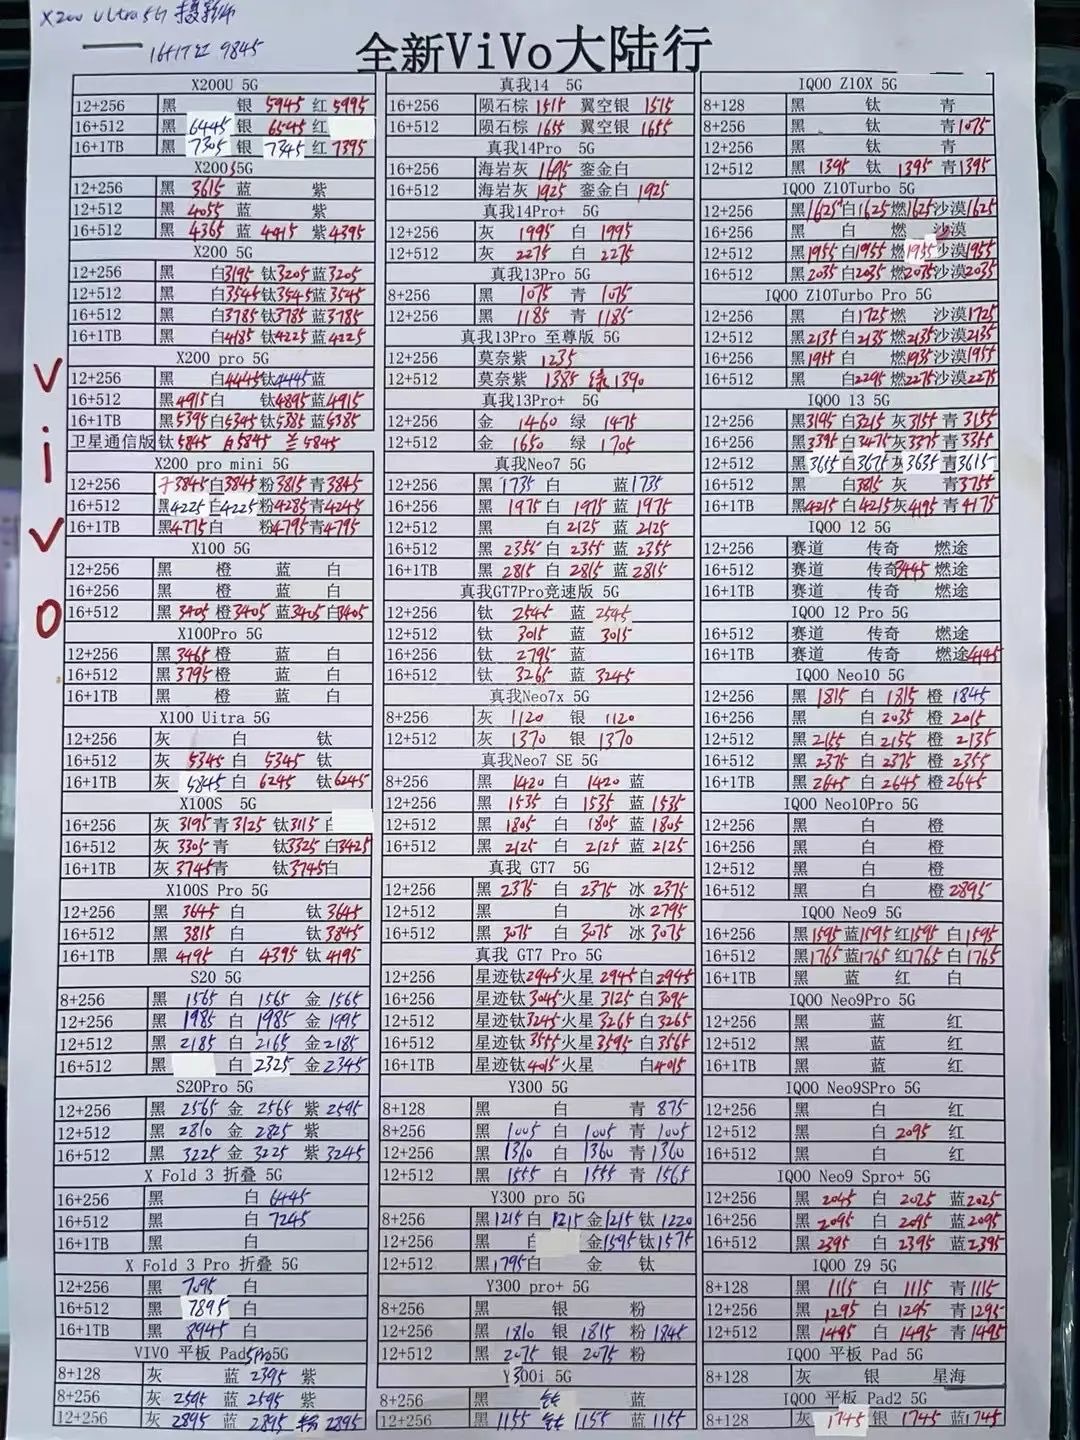 X200 Ultra 5G 摄影师
16+1T 红 9845
全新ViVo大陆行
ViVo
X200U 5G
12+256 黑 银 5945 红 5995
16+512 黑 6445 银 6545 红
16+1TB 黑 7305 银 7345 红 7395
X200S 5G
12+256 黑 3615 蓝 紫
12+512 黑 4055 蓝 紫
16+512 黑 4365 蓝 4415 紫 4395
X200 5G
12+256 黑 白3195 钛3205 蓝3205
12+512 黑 白3545 钛3545 蓝3545
16+512 黑 白3785 钛3785 蓝3785
16+1TB 黑 白4185 钛4225 蓝4225
X200 pro 5G
12+256 黑 白4445 钛4445 蓝
16+512 黑4915 白 钛4895 蓝4915
16+1TB 黑5395 白5345 钛5385 蓝5385
卫星通信版 钛5845 白5845 兰5845
X200 pro mini 5G
12+256 3845 白3845 粉3815 青3845
16+512 黑4225 白4225 粉4285 青4245
16+1TB 黑4775 白 粉4795 青4795
X100 5G
12+256 黑 橙 蓝 白
16+256 黑 橙 蓝 白
16+512 黑3405 橙3405 蓝3405 白3405
X100Pro 5G
12+256 黑3465 橙 蓝 白
16+512 黑3795 橙 蓝 白
16+1TB 黑 橙 蓝 白
X100 Uitra 5G
12+256 灰 白 钛
16+512 灰 5345 白 5345 钛
16+1TB 灰 5845 白 6245 钛6245
X100S 5G
16+256 灰 3195 青 3125 钛3115 白
16+512 灰 3305 青 钛3325 白3425
16+1TB 灰 3745 青 钛3745 白
X100S Pro 5G
12+256 黑 3645 白 钛 3645
16+512 黑 3815 白 钛 3845
16+1TB 黑 4195 白 4395 钛 4195
S20 5G
8+256 黑 1565 白 1565 金 1565
12+256 黑 1985 白 1985 金 1995
12+512 黑 2185 白 2165 金 2185
16+512 黑 白 2325 金 2345
S20Pro 5G
12+256 黑 2565 金 2565 紫 2595
12+512 黑 2810 金 2825 紫
16+512 黑 3225 金 3225 紫 3245
X Fold 3 折叠 5G
16+256 黑 白 6445
16+512 黑 白 7245
16+1TB 黑 白
X Fold 3 Pro 折叠 5G
12+256 黑 7095 白
16+512 黑 7895 白
16+1TB 黑 8945 白
VIVO 平板 Pad5Pro5G
8+128 灰 蓝 2395 紫
8+256 灰 2595 蓝 2595 紫
12+256 灰 2895 蓝 2895 粉 2895
真我14 5G
16+256 陨石棕 1515 翼空银 1515
16+512 陨石棕 1655 翼空银 1655
真我14Pro 5G
16+256 海岩灰 1695 銮金白
16+512 海岩灰 1925 銮金白 1925
真我14Pro+ 5G
12+256 灰 1995 白 1995
12+512 灰 2275 白 2275
真我13Pro 5G
8+256 黑 1075 青 1075
12+256 黑 1185 青 1185
真我13Pro 至尊版 5G
12+256 莫奈紫 1235
12+512 莫奈紫 1385 绿 1390
真我13Pro+ 5G
12+256 金 1460 绿 1475
12+512 金 1650 绿 1705
真我Neo7 5G
12+256 黑 1735 白 蓝1735
16+256 黑 1975 白 1975 蓝 1975
12+512 黑 白 2125 蓝 2125
16+512 黑 2355 白 2355 蓝 2355
16+1TB 黑 2815 白 2815 蓝 2815
真我GT7Pro竞速版 5G
12+256 钛 2545 蓝 2545
12+512 钛 3015 蓝 3015
16+256 钛 2795 蓝
16+512 钛 3265 蓝 3245
真我Neo7x 5G
8+256 灰 1120 银 1120
12+512 灰 1370 银 1370
真我Neo7 SE 5G
8+256 黑 1420 白 1420 蓝
12+256 黑 1535 白 1535 蓝 1535
12+512 黑 1805 白 1805 蓝 1805
16+512 黑 2125 白 2125 蓝 2125
真我 GT7 5G
12+256 黑 2375 白 2375 冰 2375
12+512 黑 白 冰 2795
16+512 黑 3075 白 3075 冰 3075
真我 GT7 Pro 5G
12+256 星迹钛2945 火星 2945 白2945
16+256 星迹钛3045 火星 3125 白3095
12+512 星迹钛3245 火星 3265 白3265
16+512 星迹钛3555 火星 3595 白3565
16+1TB 星迹钛4015 火星 白4015
Y300 5G
8+128 黑 白 青 875
8+256 黑 1005 白 1005 青 1005
12+256 黑 1360 白 1360 青 1360
12+512 黑 1555 白 1555 青 1565
Y300 pro 5G
8+256 黑1215 白 1215 金1215 钛 1220
12+256 黑 白 金1595 钛1575
12+512 黑1795 白 金 钛
Y300 pro+ 5G
8+256 黑 银 粉
12+256 黑 1810 银 1815 粉 1845
12+512 黑 2075 银 2075 粉
Y300i 5G
8+256 黑 钛 蓝
12+256 黑 1155 钛 1155 蓝 1155
IQOO Z10X 5G
8+128 黑 钛 青
8+256 黑 钛 青1075
12+256 黑 钛 青
12+512 黑 1395 钛 1395 青1395
IQOO Z10Turbo 5G
12+256 黑1625 白1625 燃1625 沙漠1625
16+256 黑 白 燃 沙漠
12+512 黑1955 白1955 燃1955 沙漠1955
16+512 黑2035 白2035 燃2075 沙漠2035
IQOO Z10Turbo Pro 5G
12+256 黑 白1725 燃 沙漠1725
12+512 黑2135 白2135 燃2135 沙漠2135
16+256 黑1955 白 燃1935 沙漠1955
16+512 黑 白2295 燃2275 沙漠2275
IQOO 13 5G
12+256 黑3195 白3215 灰3155 青 3155
16+256 黑3395 白3475 灰3375 青 3355
12+512 黑3655 白3675 灰3635 青3615
16+512 黑 白3815 灰 青3755
16+1TB 黑4215 白4215 灰4195 青4175
IQOO 12 5G
12+256 赛道 传奇 燃途
16+512 赛道 传奇3445 燃途
16+1TB 赛道 传奇 燃途
IQOO 12 Pro 5G
16+512 赛道 传奇 燃途
16+1TB 赛道 传奇 燃途4145
IQOO Neo10 5G
12+256 黑 1815 白 1815 橙 1845
16+256 黑 白 2035 橙 2015
12+512 黑 2155 白 2155 橙 2135
16+512 黑 2375 白 2375 橙 2355
16+1TB 黑 2645 白 2645 橙 2645
IQOO Neo10Pro 5G
12+256 黑 白 橙
16+256 黑 白 橙
12+512 黑 白 橙
16+512 黑 白 橙 2895
IQOO Neo9 5G
16+256 黑1595 蓝1595 红1595 白1595
16+512 黑1765 蓝1765 红1765 白1765
16+1TB 黑 蓝 红 白
IQOO Neo9Pro 5G
12+256 黑 蓝 红
16+512 黑 蓝 红
16+1TB 黑 蓝 红
IQOO Neo9SPro 5G
12+256 黑 白 红
12+512 黑 白 2095 红
16+512 黑 白 红
IQOO Neo9 Spro+ 5G
12+256 黑 2045 白 2025 蓝2025
16+256 黑 2095 白 2095 蓝2095
16+512 黑 2395 白 2395 蓝2395
IQOO Z9 5G
8+128 黑 1115 白 1115 青1115
12+256 黑 1295 白 1295 青1295
12+512 黑 1495 白 1495 青1495
IQOO 平板 Pad 5G
8+128 灰 银 星海
IQOO 平板 Pad2 5G
8+128 灰 1745 银 1745 蓝1745